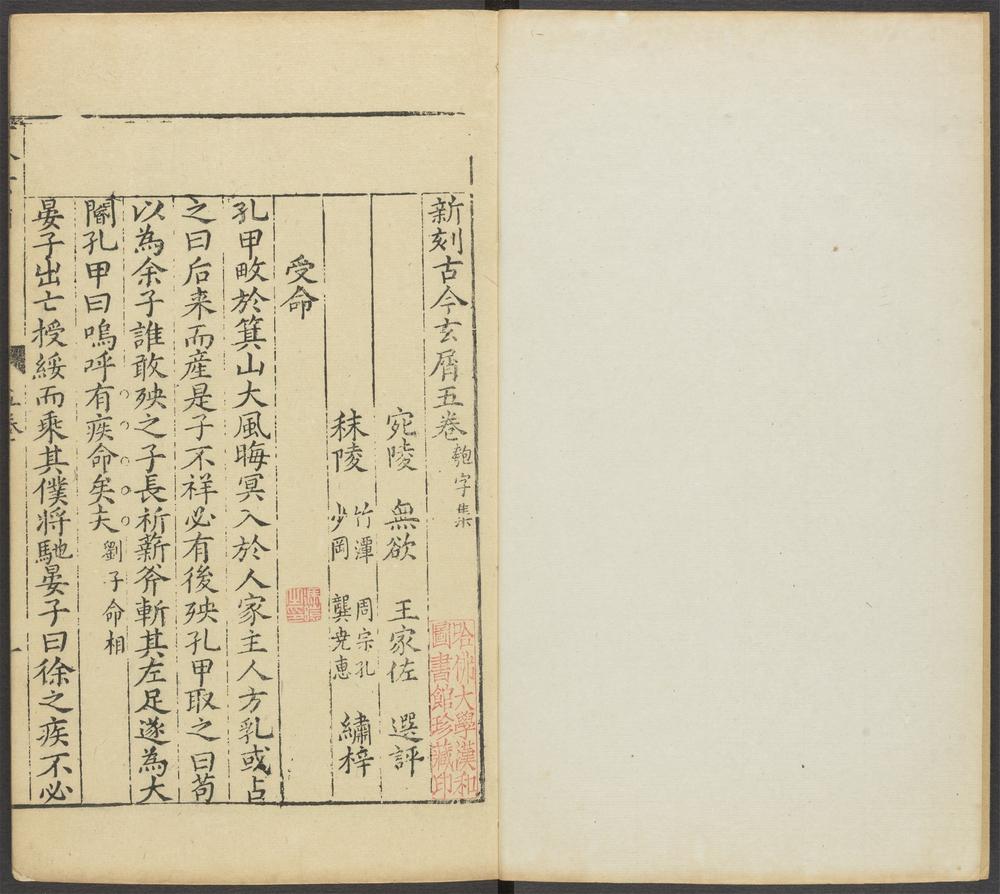 新刻古今玄屑五卷 匏字集
宛陵 無欲 王家佐 選評
秣陵 竹潭 周宗孔 少岡 龔尭惠 繡梓
受命
孔甲畋於箕山大風晦冥入於人家主人方乳或占
之曰后来而産是子不祥必有後殃孔甲取之曰苟
以為余子誰敢殃之子長祈薪斧斬其左足遂為大
閽孔甲曰嗚呼有疾命矣夫 劉子命相
晏子出亡授綏而乘其僕将馳晏子曰徐之疾不必
哈佛大學漢和
圖書館珍藏印